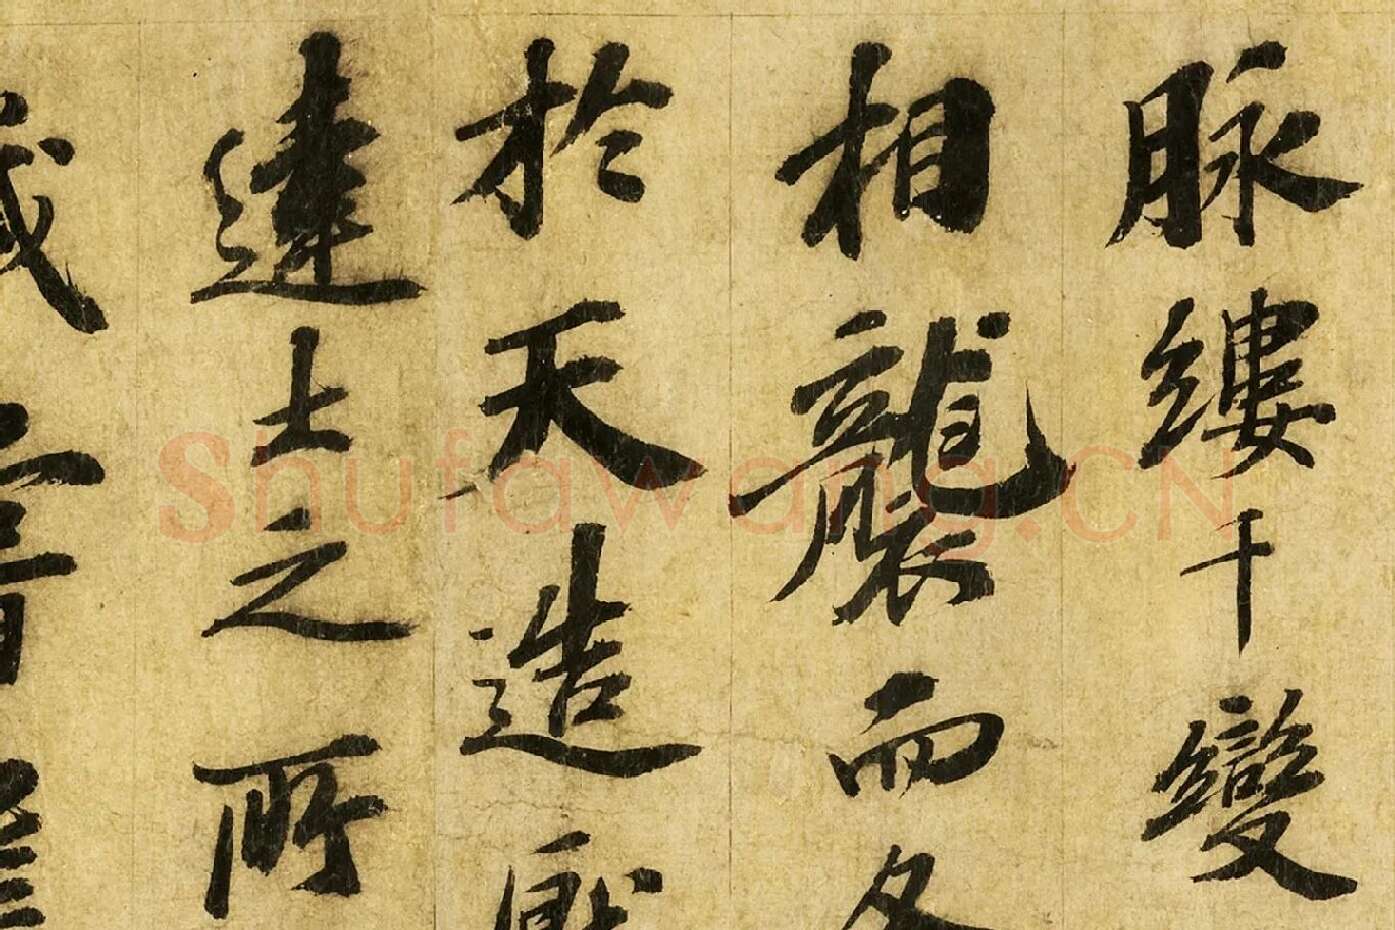 脉縷千變
相襲而各
於天造厭
達士之所
Shufawang.CN